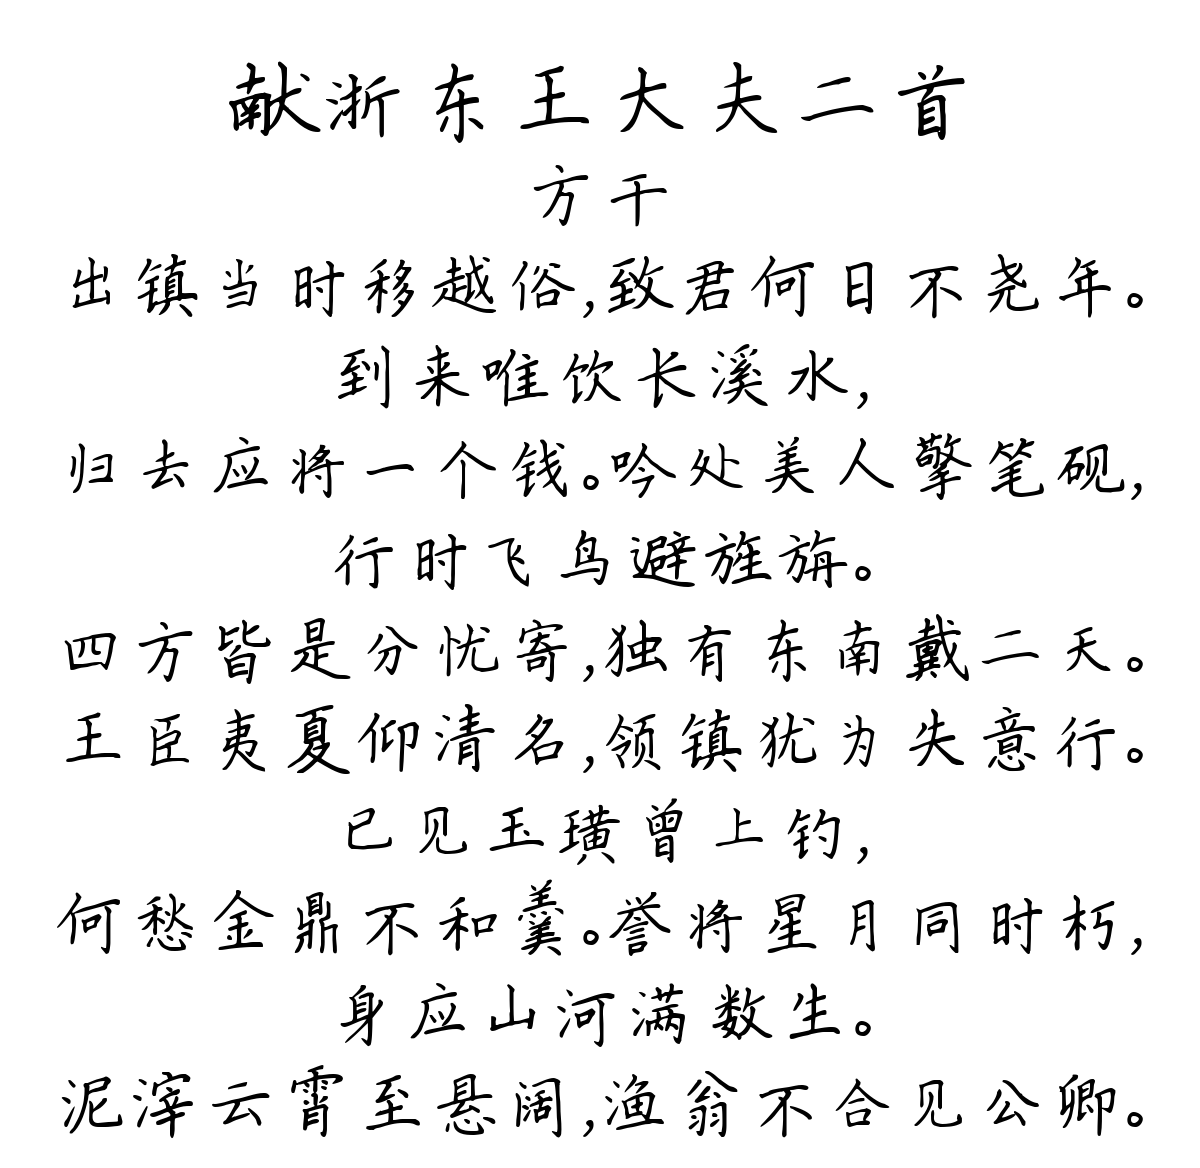 献浙东王大夫二首
方干
出镇当时移越俗,致君何日不尧年。
到来唯饮长溪水,
归去应将一个钱。吟处美人擎笔砚,
行时飞鸟避旌旃。
四方皆是分忧寄,独有东南戴二天。
王臣夷夏仰清名,领镇犹为失意行。
已见玉璜曾上钓,
何愁金鼎不和羹。誉将星月同时朽,
身应山河满数生。
泥滓云霄至悬阔,渔翁不合见公卿。